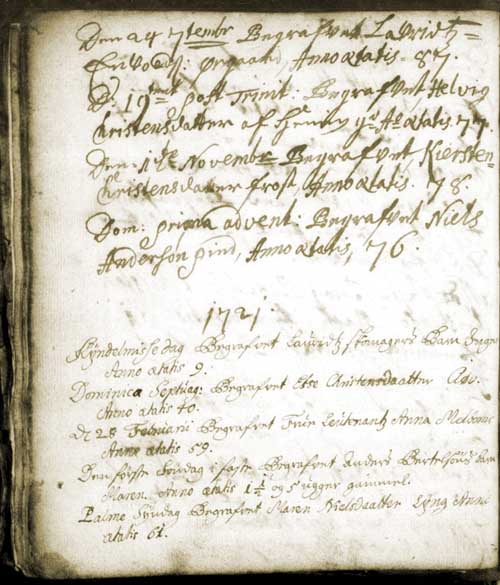 Den 24 7tembr Begrafvet Lauridtz
Anno ætatis. 87.
D. 19 post Trinit: Begrafvet Helvig
Christensdatter af ætatis 77
Den Novembr Begrafvet, Kiersten
Christensdatter frost, Anno ætatis. 78.
Dom: prima advent: Begrafvet Niels
Anderson pind, Anno ætatis, 76.
1721.
Kyndelmisse dag Begrafvet Lauridtz Skomagers Barn
Anno ætatis 9.
Dominica Septuag: Begrafvet Else Christensdaatter
Anno ætatis 40.
28 Februarii Begrafvet Leütenantz Anna
Anno ætatis 59.
Den første Søndag i faste Begrafvet Anders Bertelsøns barn
Maren. Anno ætatis 1½ og 5 ugger gammel.
Palme Søndag Begrafvet Maren Nielsdaatter Anno
ætatis 61.